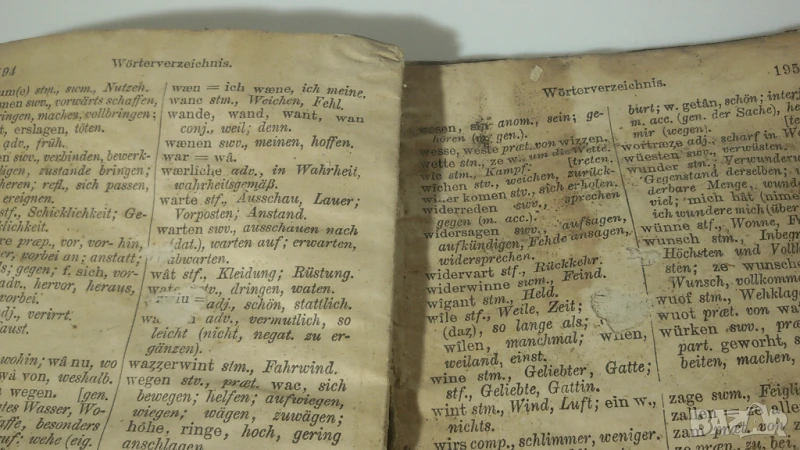 94
Wörterverzeichnis.
um(e) stm., swm., Nutzen.
men swv., vorwärts schaffen,
ringen, machen, vollbringen;
t, erslagen, töten.
adv., früh.
en swv., verbinden, bewerk-
digen, zustande bringen;
heren; refl., sich passen,
ereignen.
stf., Schicklichkeit; Ge-
klichkeit.
re præp., vor, vor- hin,
er, vorbei an; anstatt;
s; gegen; f. sich, vor-
adv., hervor, heraus,
vorbei.
dj., verirrt.
aust.
wohin; wâ nu, wo
wâ von, weshalb.
wegen. [gen.
tes Wasser, Wo-
affe, besonders
uf; wehe (eig.
wæn = ich wæne, ich meine.
wanc stm., Weichen, Fehl.
wande, wand, want, wan
conj., weil; denn.
wænen swv., meinen, hoffen.
war = wâ.
wærliche adv., in Wahrheit,
wahrheitsgemäß.
warte stf., Ausschau, Lauer;
Vorposten; Anstand.
warten swv., ausschauen nach
(dat.), warten auf; erwarten,
abwarten.
wât stf., Kleidung; Rüstung.
stv., dringen, waten.
adj., schön, stattlich.
adv., vermutlich, so
leicht (nicht, negat. zu er-
gänzen).
wazzerwint stm., Fahrwind.
wegen stv., præt. wac, sich
bewegen; helfen; aufwiegen,
wiegen; wägen, zuwägen;
höhe, ringe, hoch, gering
anschlagen.
Wörterverzeichnis.
195
wesen, sîn anom., sein; ge-
hören (m. gen.).
wesse, weste præt. von wizzen.
wette stn., ze w., um die Wette.
wîc stm., Kampf. [treten.
wîchen stv., weichen, zurück-
komen stv., sich erholen.
widerreden swv., sprechen
gegen (m. acc.).
widersagen swv., aufsagen,
aufkündigen, Fehde ansagen,
widersprechen.
widervart stf., Rückkehr.
widerwinne swm., Feind.
wîgant stm., Held.
wîle stf., Weile, Zeit;
(daz), so lange als;
wîlen, manchmal; wîlen,
weiland, einst.
wine stm., Geliebter, Gatte;
stf., Geliebte, Gattin.
wint stm., Wind, Luft; ein w.,
nichts.
wirs comp., schlimmer, weniger.
burt; w. getân, schön; interj.
m. acc. (gen. der Sache), he
mir (wegen).
wortræze adj., scharf in Wo
wüesten swv., verwüsten.
wunder stn., Verwunderu
Gegenstand derselben;
derbare Menge, wunde
viel; mich hât (nime
ich wundere mich (über
wünne stf., Wonne, F
wunsch stm., Inbegr
Höchsten und Vollk
sten; ze wunsche
Wunsch, vollkomme
wuof stm., Wehklag
wuot præt. von wa
würken swv., præ
part. geworht, s
beiten, machen,
zage swm., Feigli
zallen = ze allen
zam præt. von
= ze præp., zu, bei,